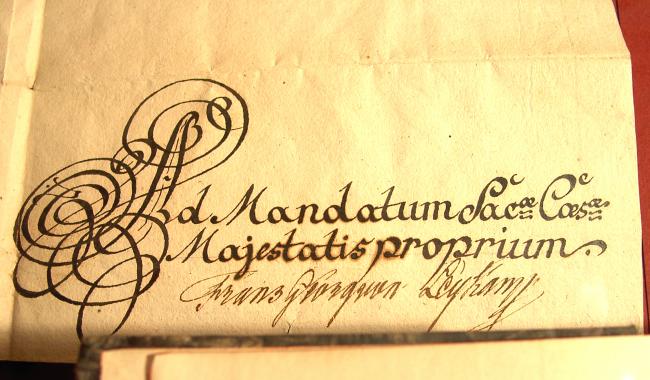 Ad Mandatum Sac:æ Cæs:æ
Majestatis proprium.
Franz Georg von Leykam